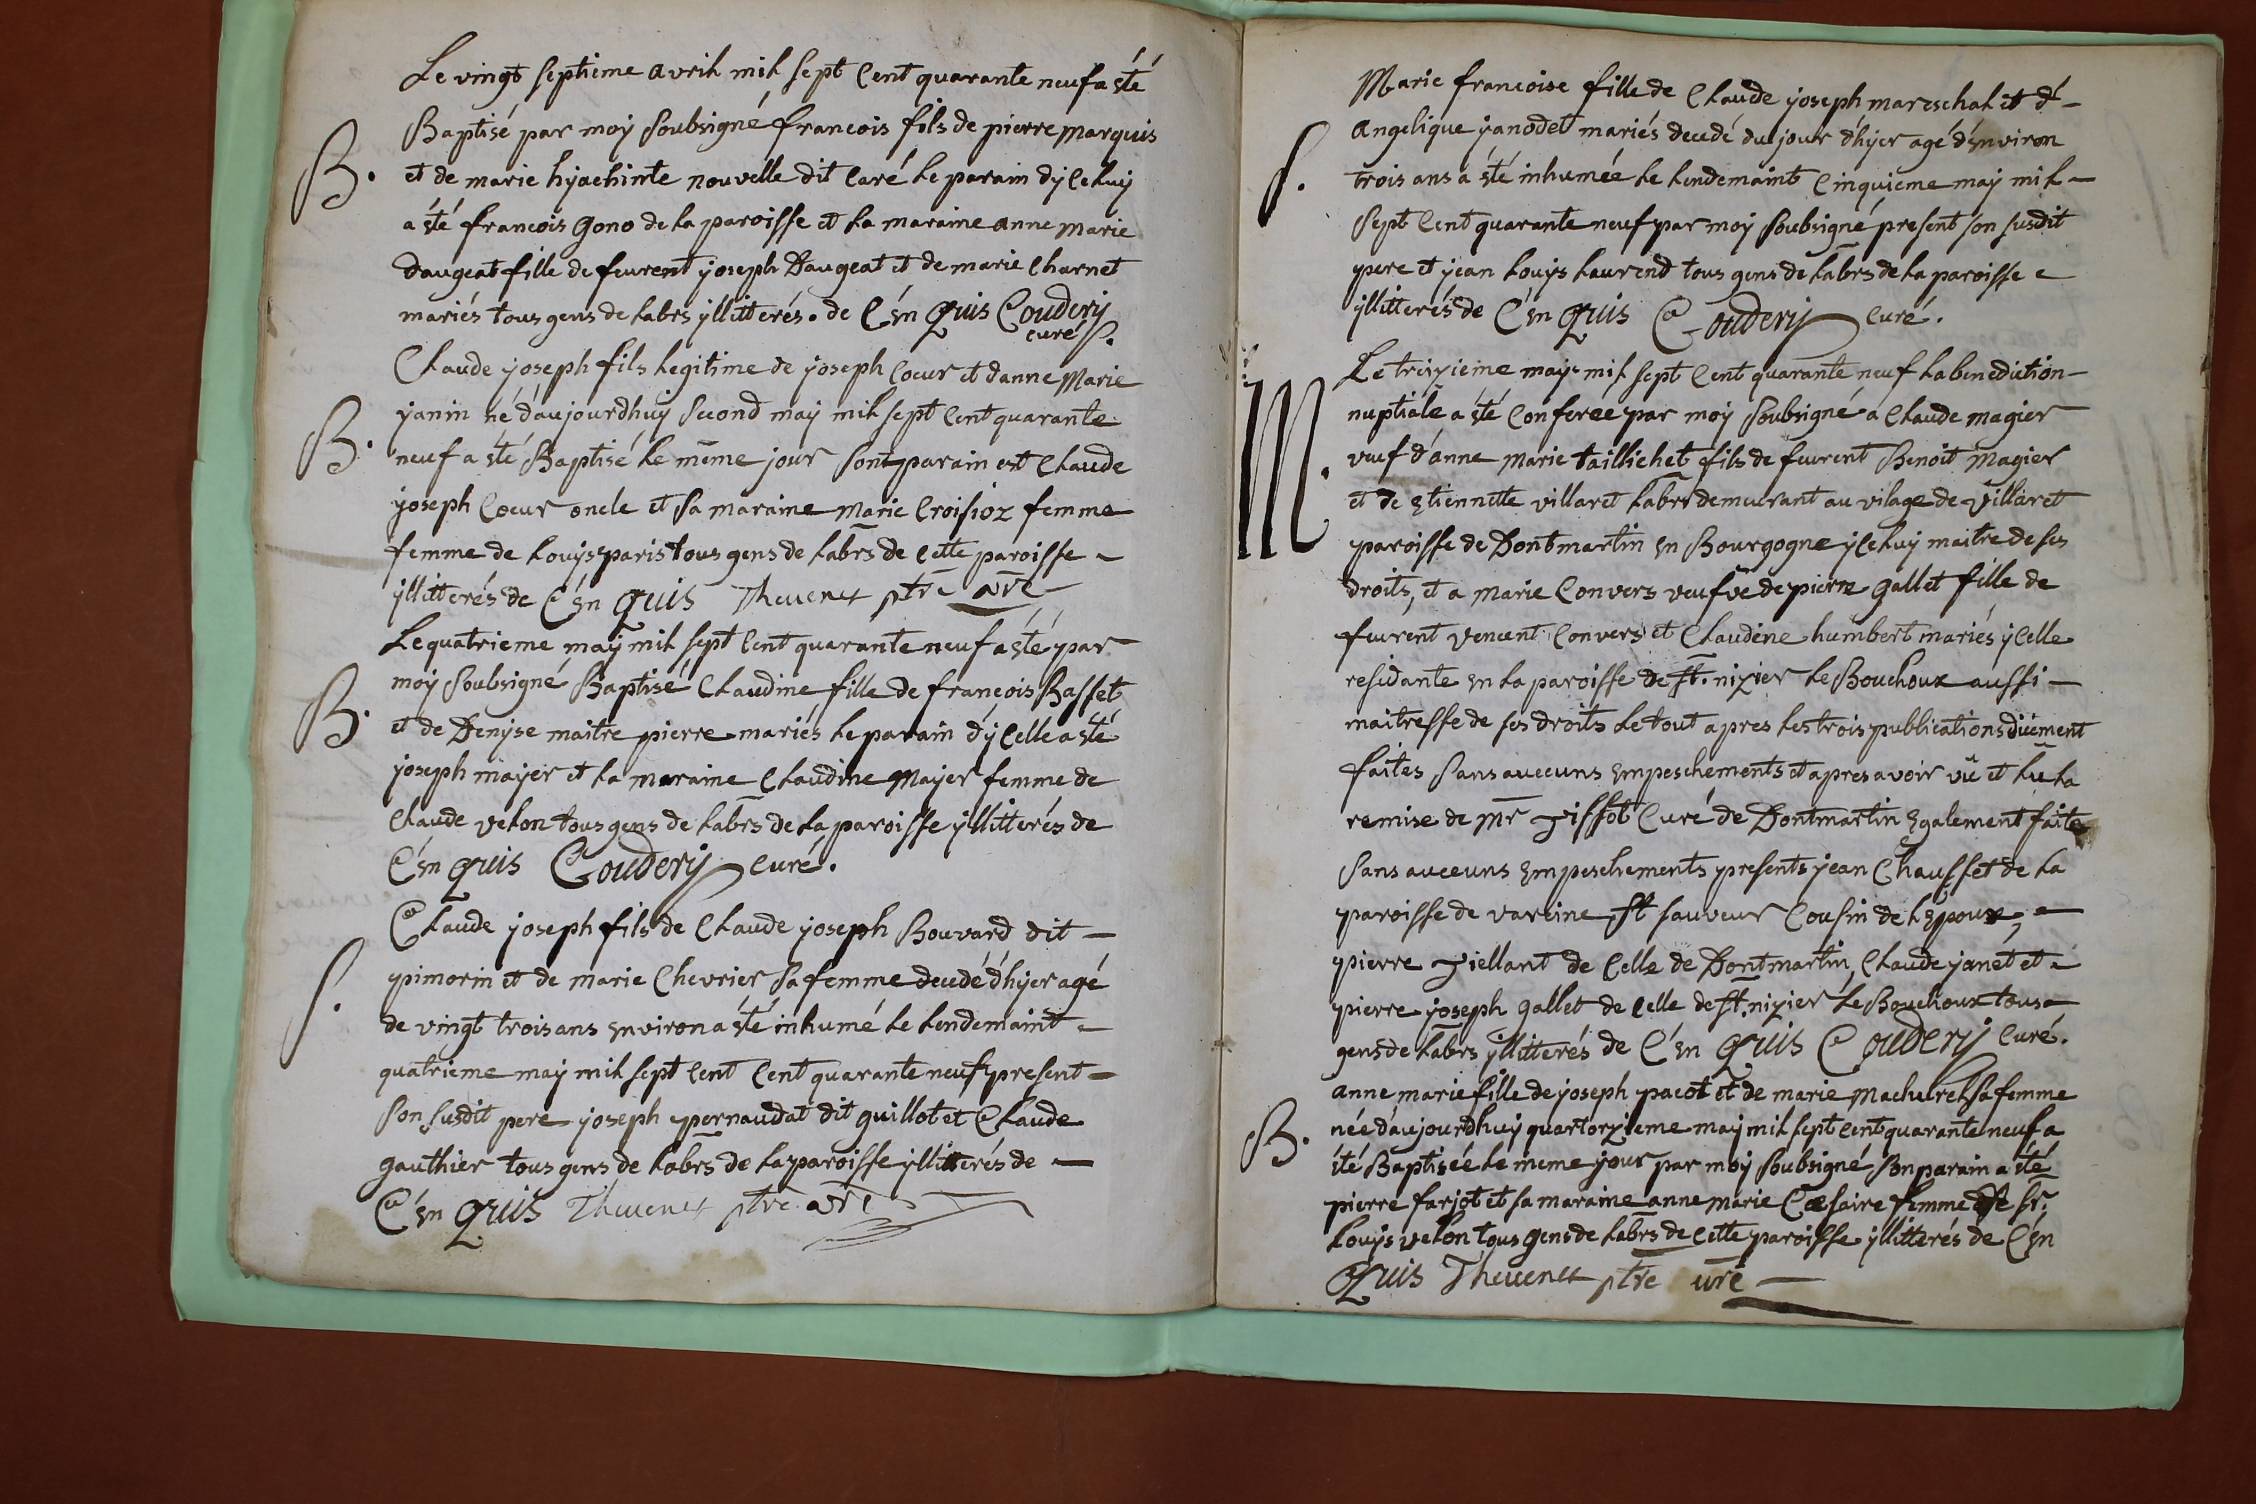 Le vingt septieme avril mil sept Cent quarante neuf a èté
B. Baptisé par moy Soubsigné francois fils de pierre Marquis
et de marie hyachinte nouvelle dit Caré le parain d'yceluy
a èté francois Gono de la paroisse et la maraine anne marie
daugeat fille de feurent joseph Daugeat et de marie Charnet
mariés tous gens de labrs yllitterés. de C én quis Coudery
curé
Claude joseph fils legitime de joseph Coeur et d'anne Marie
yanin né d'aujourdhuy Second may mil sept Cent quarante
B. neuf a èté Baptisé le même jour Sont parain est Claude
joseph Coeur oncle et sa maraine Marie Croisioz femme
femme de Louys paris tous gens de labrs de Cette paroisse
yllitterés de C én quis Thevenet ptre vre
Le quatrieme may mil sept Cent quarante neuf a èté par
moy Soubsigné Baptisé Claudine fille de françois Basset
B. et de Denyse maitre pierre mariés le parain d'ycelle a èté
joseph mayer et la maraine Claudine Mayer femme de
Claude velon tous gens de labrs de la paroisse yllitterés de
C én quis Coudery Curé.
Claude joseph fils de Claude joseph Bouvard dit
S. pimorin et de marie Chevrier sa femme decedé d'hyer agé
de vingt trois ans environ a èté inhumé le lendemaint
quatrieme may mil sept Cent Cent quarante neuf present
Son susdit pere joseph pernaudat dit guillot et Claude
gauthier tous gens de labrs de la paroisse yllitterés de
C én quis Thevenet ptre vre
Marie francoise fille de Claude joseph mareschal et d'
angelique yanodet mariés decedé du jour d'hyer agé d'environ
S. trois ans a èté inhumée le lendemaint Cinquieme may mil
Sept Cent quarante neuf par moy Soubsigné present son susdit
pere et yean Louys Laurend tous gens de labrs de la paroisse
yllitterés de C én quis Coudery Curé.
Le treizieme may mil sept Cent quarante neuf la benediction
nuptiale a èté Conferée par moy Soubsigné a Claude magier
M. veuf d'anne marie taillichet fils de feurent Benoit Magier
et de Etiennette villaret labrs demeurant au vilage de villaret
paroisse de Dontmartin en Bourgogne yceluy maitre de ses
droits, et a marie Convers veufve de pierre gallet fille de
feurent vencent Convers et Claudine humbert mariés ycelle
residante en la paroisse de St. nizier le Bouchoux aussi
maitresse de ses droits le tout apres les trois publications düement
faites Sans auceuns empeschements et apres avoir vü et lu la
remise de Mr Tissot Curé de Dontmartin egalement faite
Sans auceuns empeschements presents yean Chausset de la
paroisse de vareine St sauveur Cousin de l'epoux,
pierre Tiellant de Celle de Dontmartin, Claude yanet et
pierre joseph gallet de Celle de St. nizier le Bouchoux tous
gens de labrs yllitterés de C én quis Coudery Curé.
anne marie fille de joseph pacot et de marie Machuret sa femme
née d'aujourdhuy quartorzieme may mil sept Cent quarante neuf a
B. èté Baptisée le meme jour par moy Soubsigné Son parain a èté
pierre farjot et sa maraine anne marie Caesaire femme de Sr.
Louys velon tous gens de labrs de Cette paroisse yllitterés de C én
quis Thevenet ptre vre